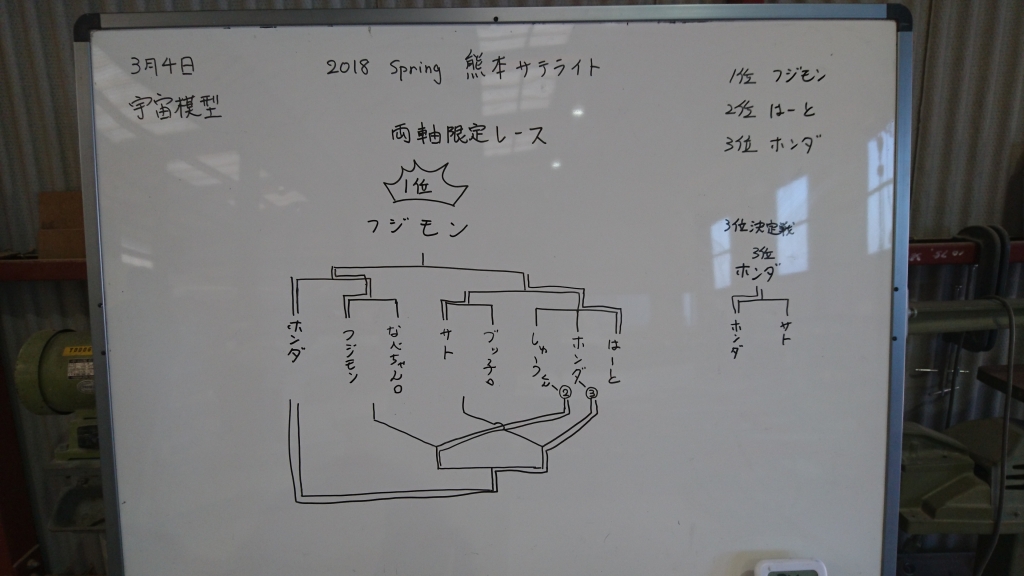 3月4日
宇宙模型
2018 Spring 熊本サテライト
両軸限定レース
1位
フジモン
1位 フジモン
2位 はーと
3位 ホンダ
3位決定戦
3位
ホンダ
ホンダ
サト
ホンダ
フジモン
なべちゃん。
サト
ブッチ。
しゅーうん
ホンダ
はーと
②
③